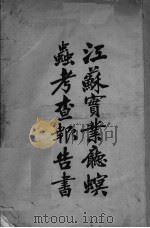 江蘇實業廳螟
蟲考查報告書
www.mtoou.info